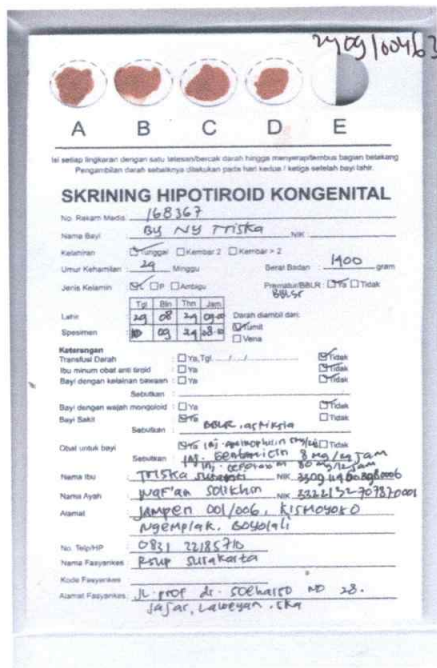 2409100463
A B C D E
Isi setiap lingkaran dengan satu tetesan/bercak darah hingga menyerap/tembus bagian belakang
Pengambilan darah sebaiknya dilakukan pada hari kedua / ketiga setelah bayi lahir.
SKRINING HIPOTIROID KONGENITAL
No. Rekam Medis 168367
Nama Bayi By NY Triska NIK :
Kelahiran : Tunggal Kembar 2 Kembar > 2
Umur Kehamilan : 29 Minggu Berat Badan : 1900 gram
Jenis Kelamin : L P Ambigu Prematur/BBLR : Ya Tidak
BBLSR
Tgl Bln Thn Jam
Lahir 29 08 24 09.00 Darah diambil dari:
Spesimen 10 09 24 08.00 Tumit
Vena
Keterangan
Transfusi Darah : Ya,Tgl. / / Tidak
Ibu minum obat anti tiroid : Ya Tidak
Bayi dengan kelainan bawaan : Ya Tidak
Sebutkan :
Bayi dengan wajah mongoloid : Ya Tidak
Bayi Sakit : Ya Tidak
Sebutkan : BBLR, asfiksia
Obat untuk bayi : Ya inj. aminophilin Tidak
Sebutkan : inj. Gentamicin 8 mg/24 jam
inj. 80 mg/12 jam
Nama Ibu : Triska NIK
Nama Ayah : Waf'an Solikhin NIK
Alamat : Jampen 001/006, Kismoyoso
Ngemplak, Boyolali
No. Telp/HP : 0831 22185710
Nama Fasyankes : RSUP Surakarta
Kode Fasyankes :
Alamat Fasyankes : Jl. Prof dr. Soeharso NO 28.
Jajar, Laweyan, Ska